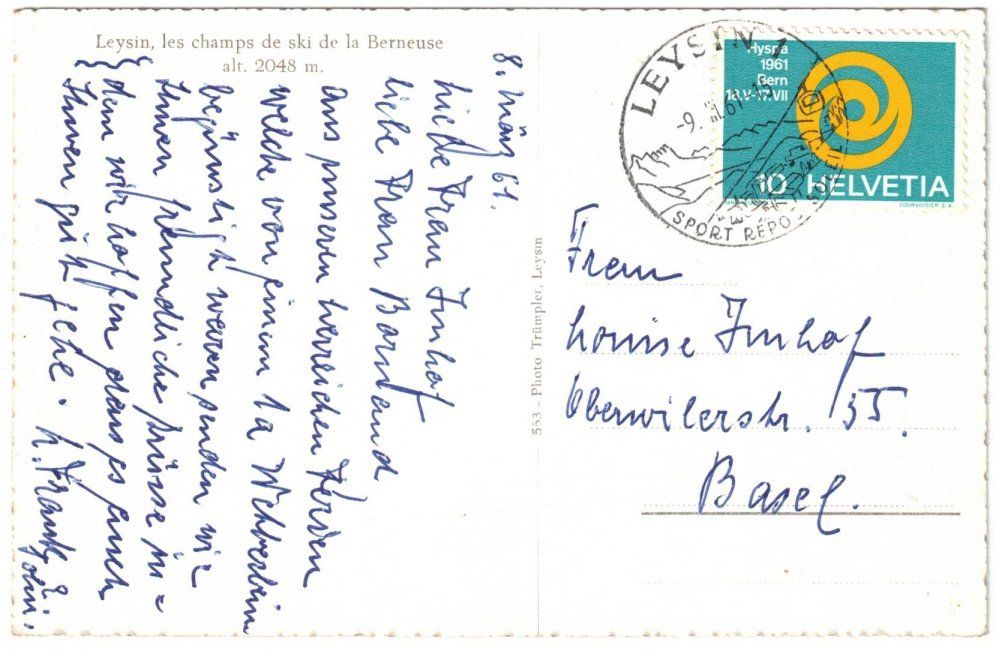 Leysin, les champs de ski de la Berneuse
alt. 2048 m.
8. März 61.
Liebe Frau Imhof
liebe Frau
Aus unseren herrlichen Ferien
welche von einem 1a
begünstigt waren senden wir
Ihnen freundliche Grüsse in-
dem wir hoffen dass es auch
Ihnen gut gehe.
553 - Photo Trümpler, Leysin
LEYSIN
-9.
SPORT REPOS
Hyspa
1961
Bern
18.V-17.VII
10 HELVETIA
COURVOISIER S.A.
Frau
Louise Imhof
Oberwilerstr. 55
Basel.